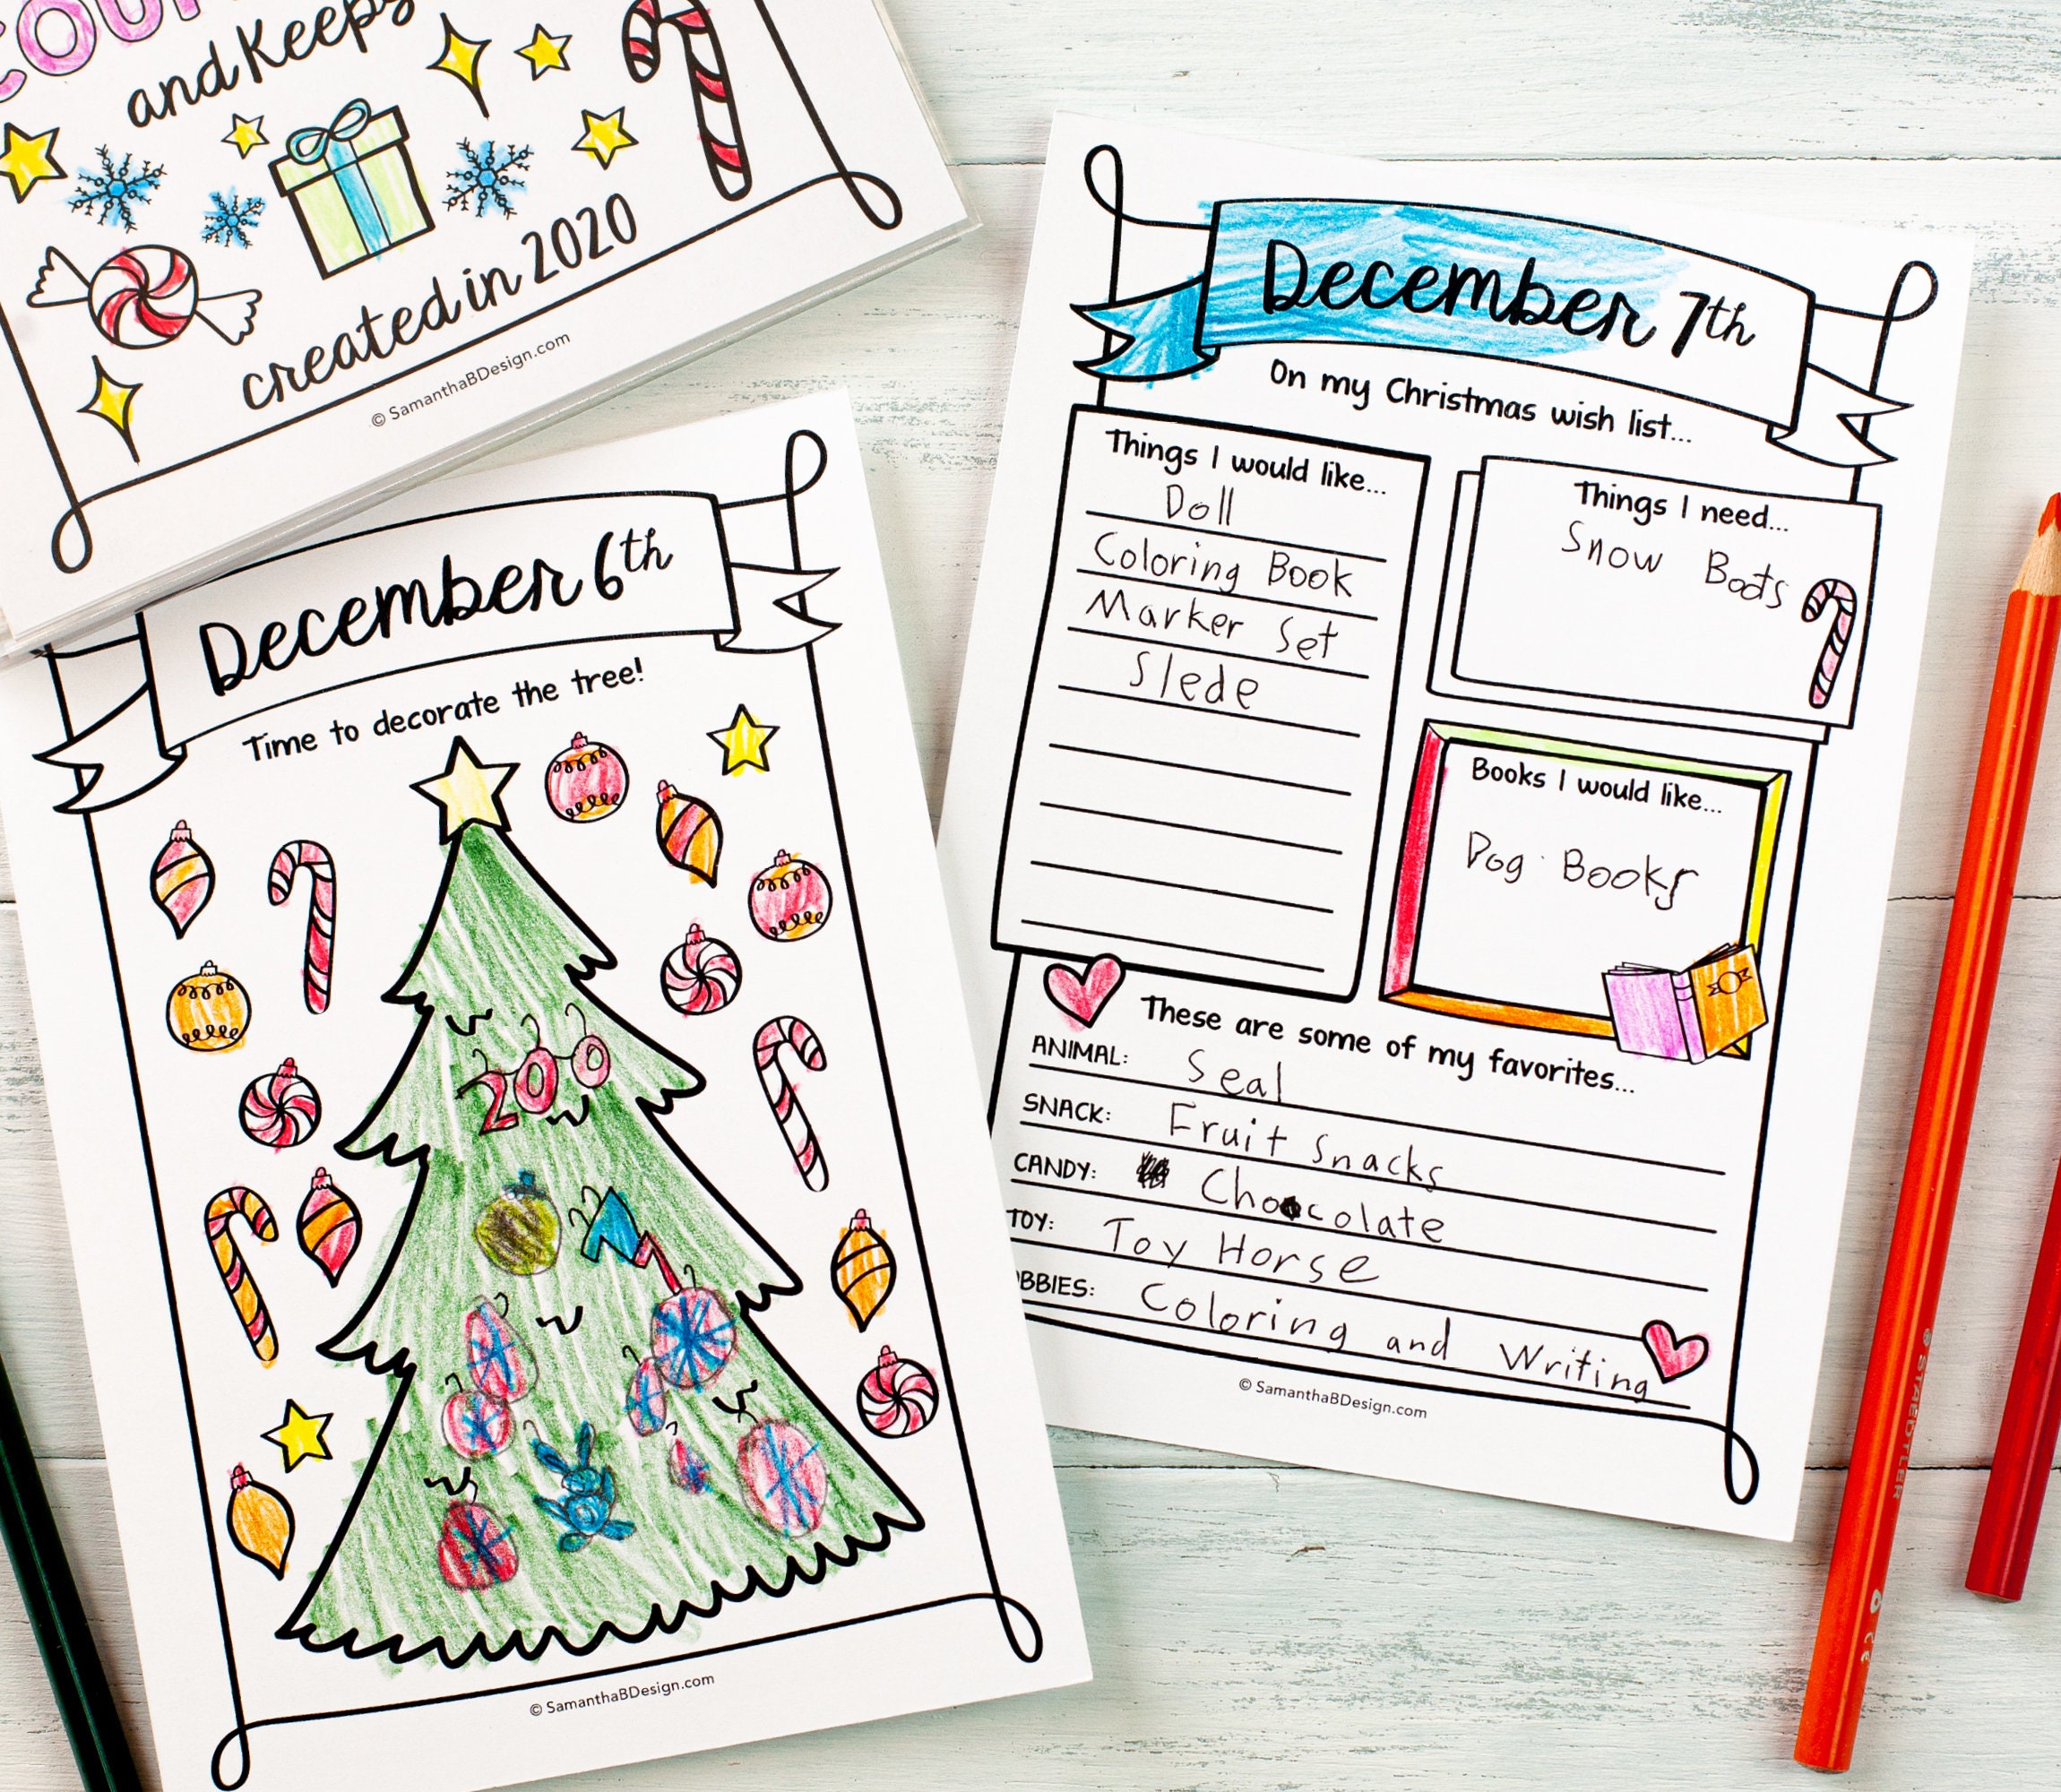 COU
and Keeps
created in 2020
© SamanthaBDesign.com
December 6th
Time to decorate the tree!
200
© SamanthaBDesign.com
December 7th
On my Christmas wish list...
Things I would like...
Doll
Coloring Book
Marker Set
Slede
Things I need...
Snow Boots
Books I would like...
Dog Books
These are some of my favorites...
ANIMAL: Seal
SNACK: Fruit Snacks
CANDY: Chocolate
TOY: Toy Horse
BBIES: Coloring and Writing
© SamanthaBDesign.com
STAEDTLER